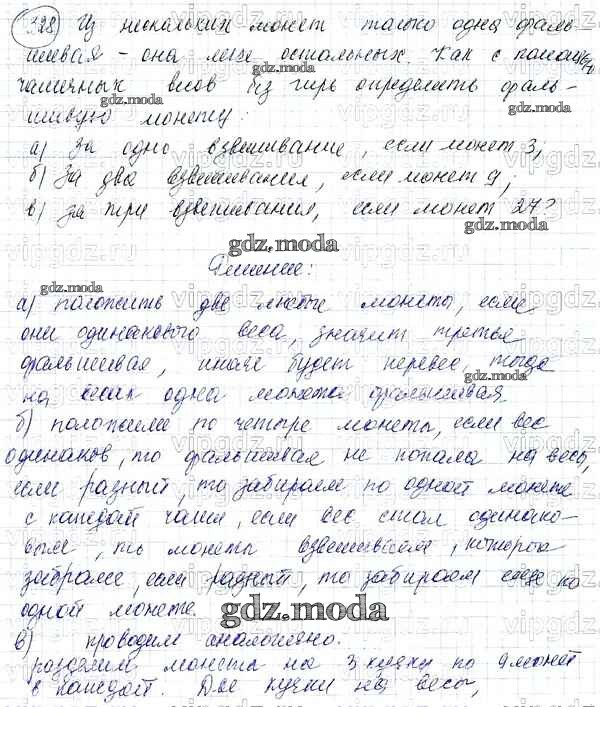 328) Из нескольких монет только одна фаль-
шивая - она легче остальных. Как с помощью
чашечных весов без гирь определить фаль-
шивую монету:
а) За одно взвешивание, если монет 3;
б) За два взвешивания, если монет 9;
в) за три взвешивания, если монет 27?
Решение:
а) положить две любые монеты, если
они одинакового веса, значит третья
фальшивая, иначе будет перевес, тогда
на одна монета фальшивая
б) положим по четыре монеты, если вес
одинаков, то фальшивая не попала на весы,
если разный, то забираем по одной монете
с каждой чаши, если вес стал одинако-
вым, то монеты взвешиваем, которые
забрали, если разный, то забираем еще по
одной монете.
в) проводим аналогично.
разделим монеты на 3 кучки по 9 монет
в каждой. Две кучки на весы,
gdz.moda
gdz.moda
gdz.moda
gdz.moda
gdz.moda
gdz.moda
gdz.moda
vipgdz.ru